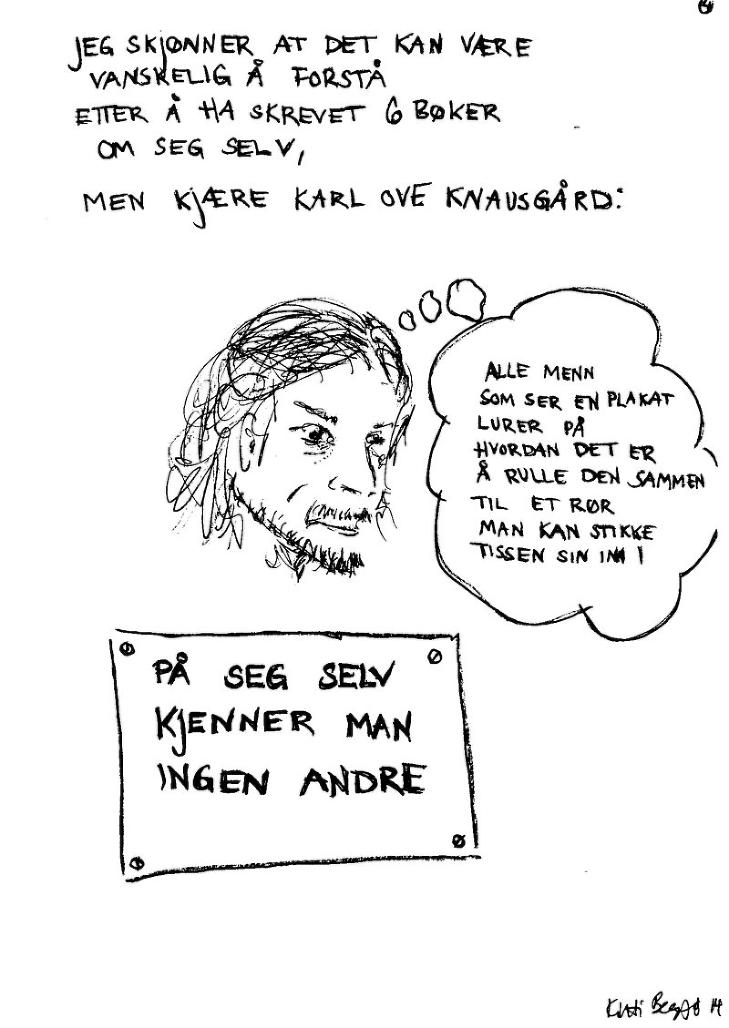 JEG SKJØNNER AT DET KAN VÆRE
VANSKELIG Å FORSTÅ
ETTER Å HA SKREVET 6 BØKER
OM SEG SELV,
MEN KJÆRE KARL OVE KNAUSGÅRD:
ALLE MENN
SOM SER EN PLAKAT
LURER PÅ
HVORDAN DET ER
Å RULLE DEN SAMMEN
TIL ET RØR
MAN KAN STIKKE
TISSEN SIN INN!
PÅ SEG SELV
KJENNER MAN
INGEN ANDRE
14